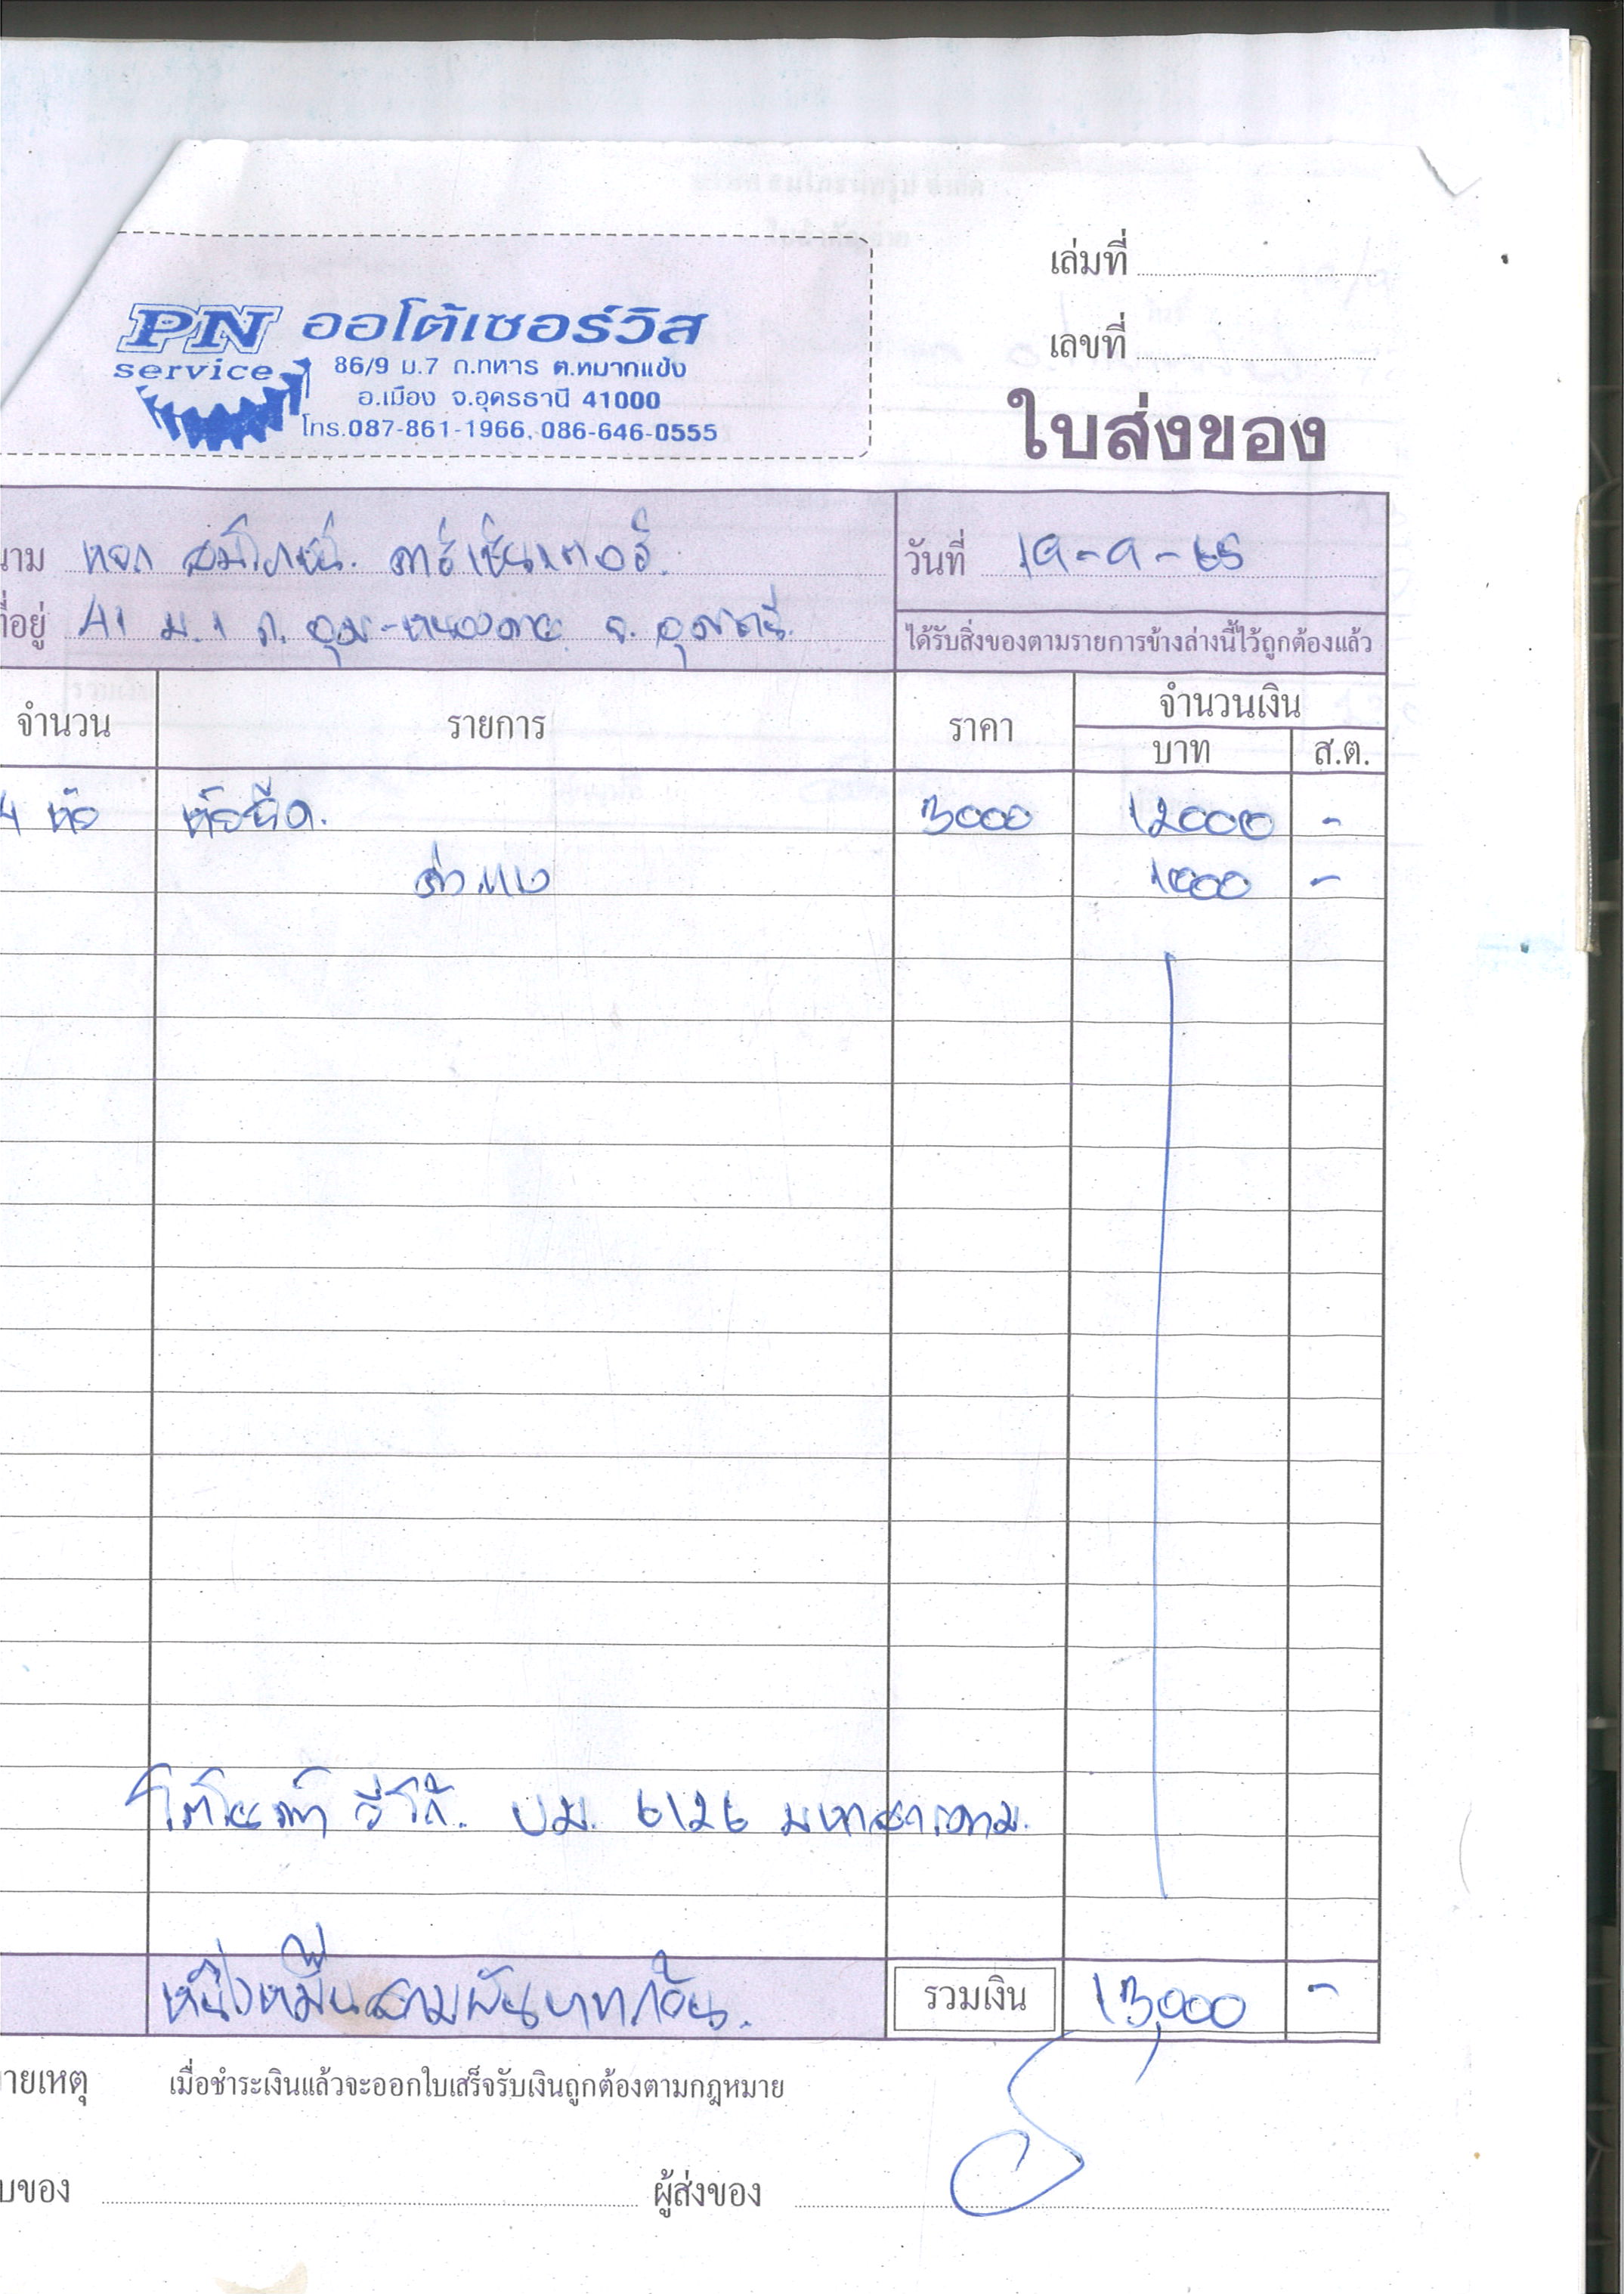 เล่มที่
เลขที่
PN service ออโต้เซอร์วิส
86/9 ม.7 ถ.ทหาร ต.หมากแข้ง
อ.เมือง จ.อุดรธานี 41000
โทร.087-861-1966, 086-646-0555
ใบส่งของ
นาม หจก
วันที่ 19-9-65
ที่อยู่ ม.1 ถ. จ.
ได้รับสิ่งของตามรายการข้างล่างนี้ไว้ถูกต้องแล้ว
จำนวน รายการ ราคา จำนวนเงิน
บาท ส.ต.
4 หัว หัวฉีด. 3000 12000 -
ค่าแรง 1000 -
โตโยต้า วีโก้. บม. 6126 มหาสารคาม.
หนึ่งหมื่นสามพันบาทถ้วน. รวมเงิน 13,000 -
มายเหตุ เมื่อชำระเงินแล้วจะออกใบเสร็จรับเงินถูกต้องตามกฎหมาย
บของ ผู้ส่งของ